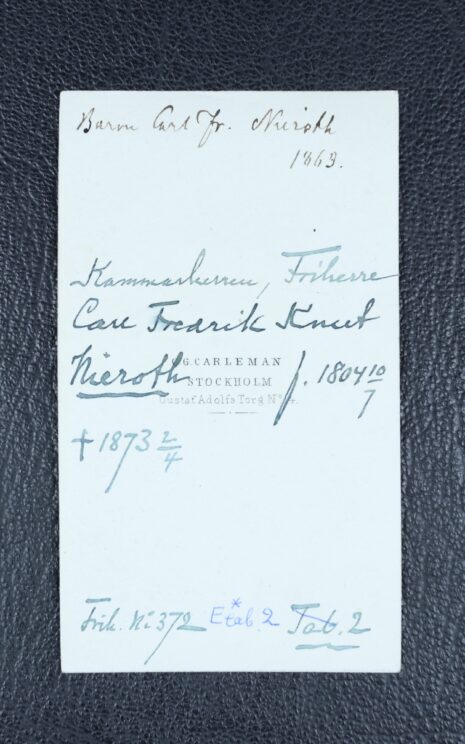 Baron Carl Fr. Nieroth
1863.
Kammarherren, Friherre
Carl Fredrik Knut
Nieroth f. 1804 10/7
G. CARLEMAN
STOCKHOLM
Gustaf Adolfs Torg Nº 4.
† 1873 2/4
Frih. No 372 Etab. 2 * Tab. 2